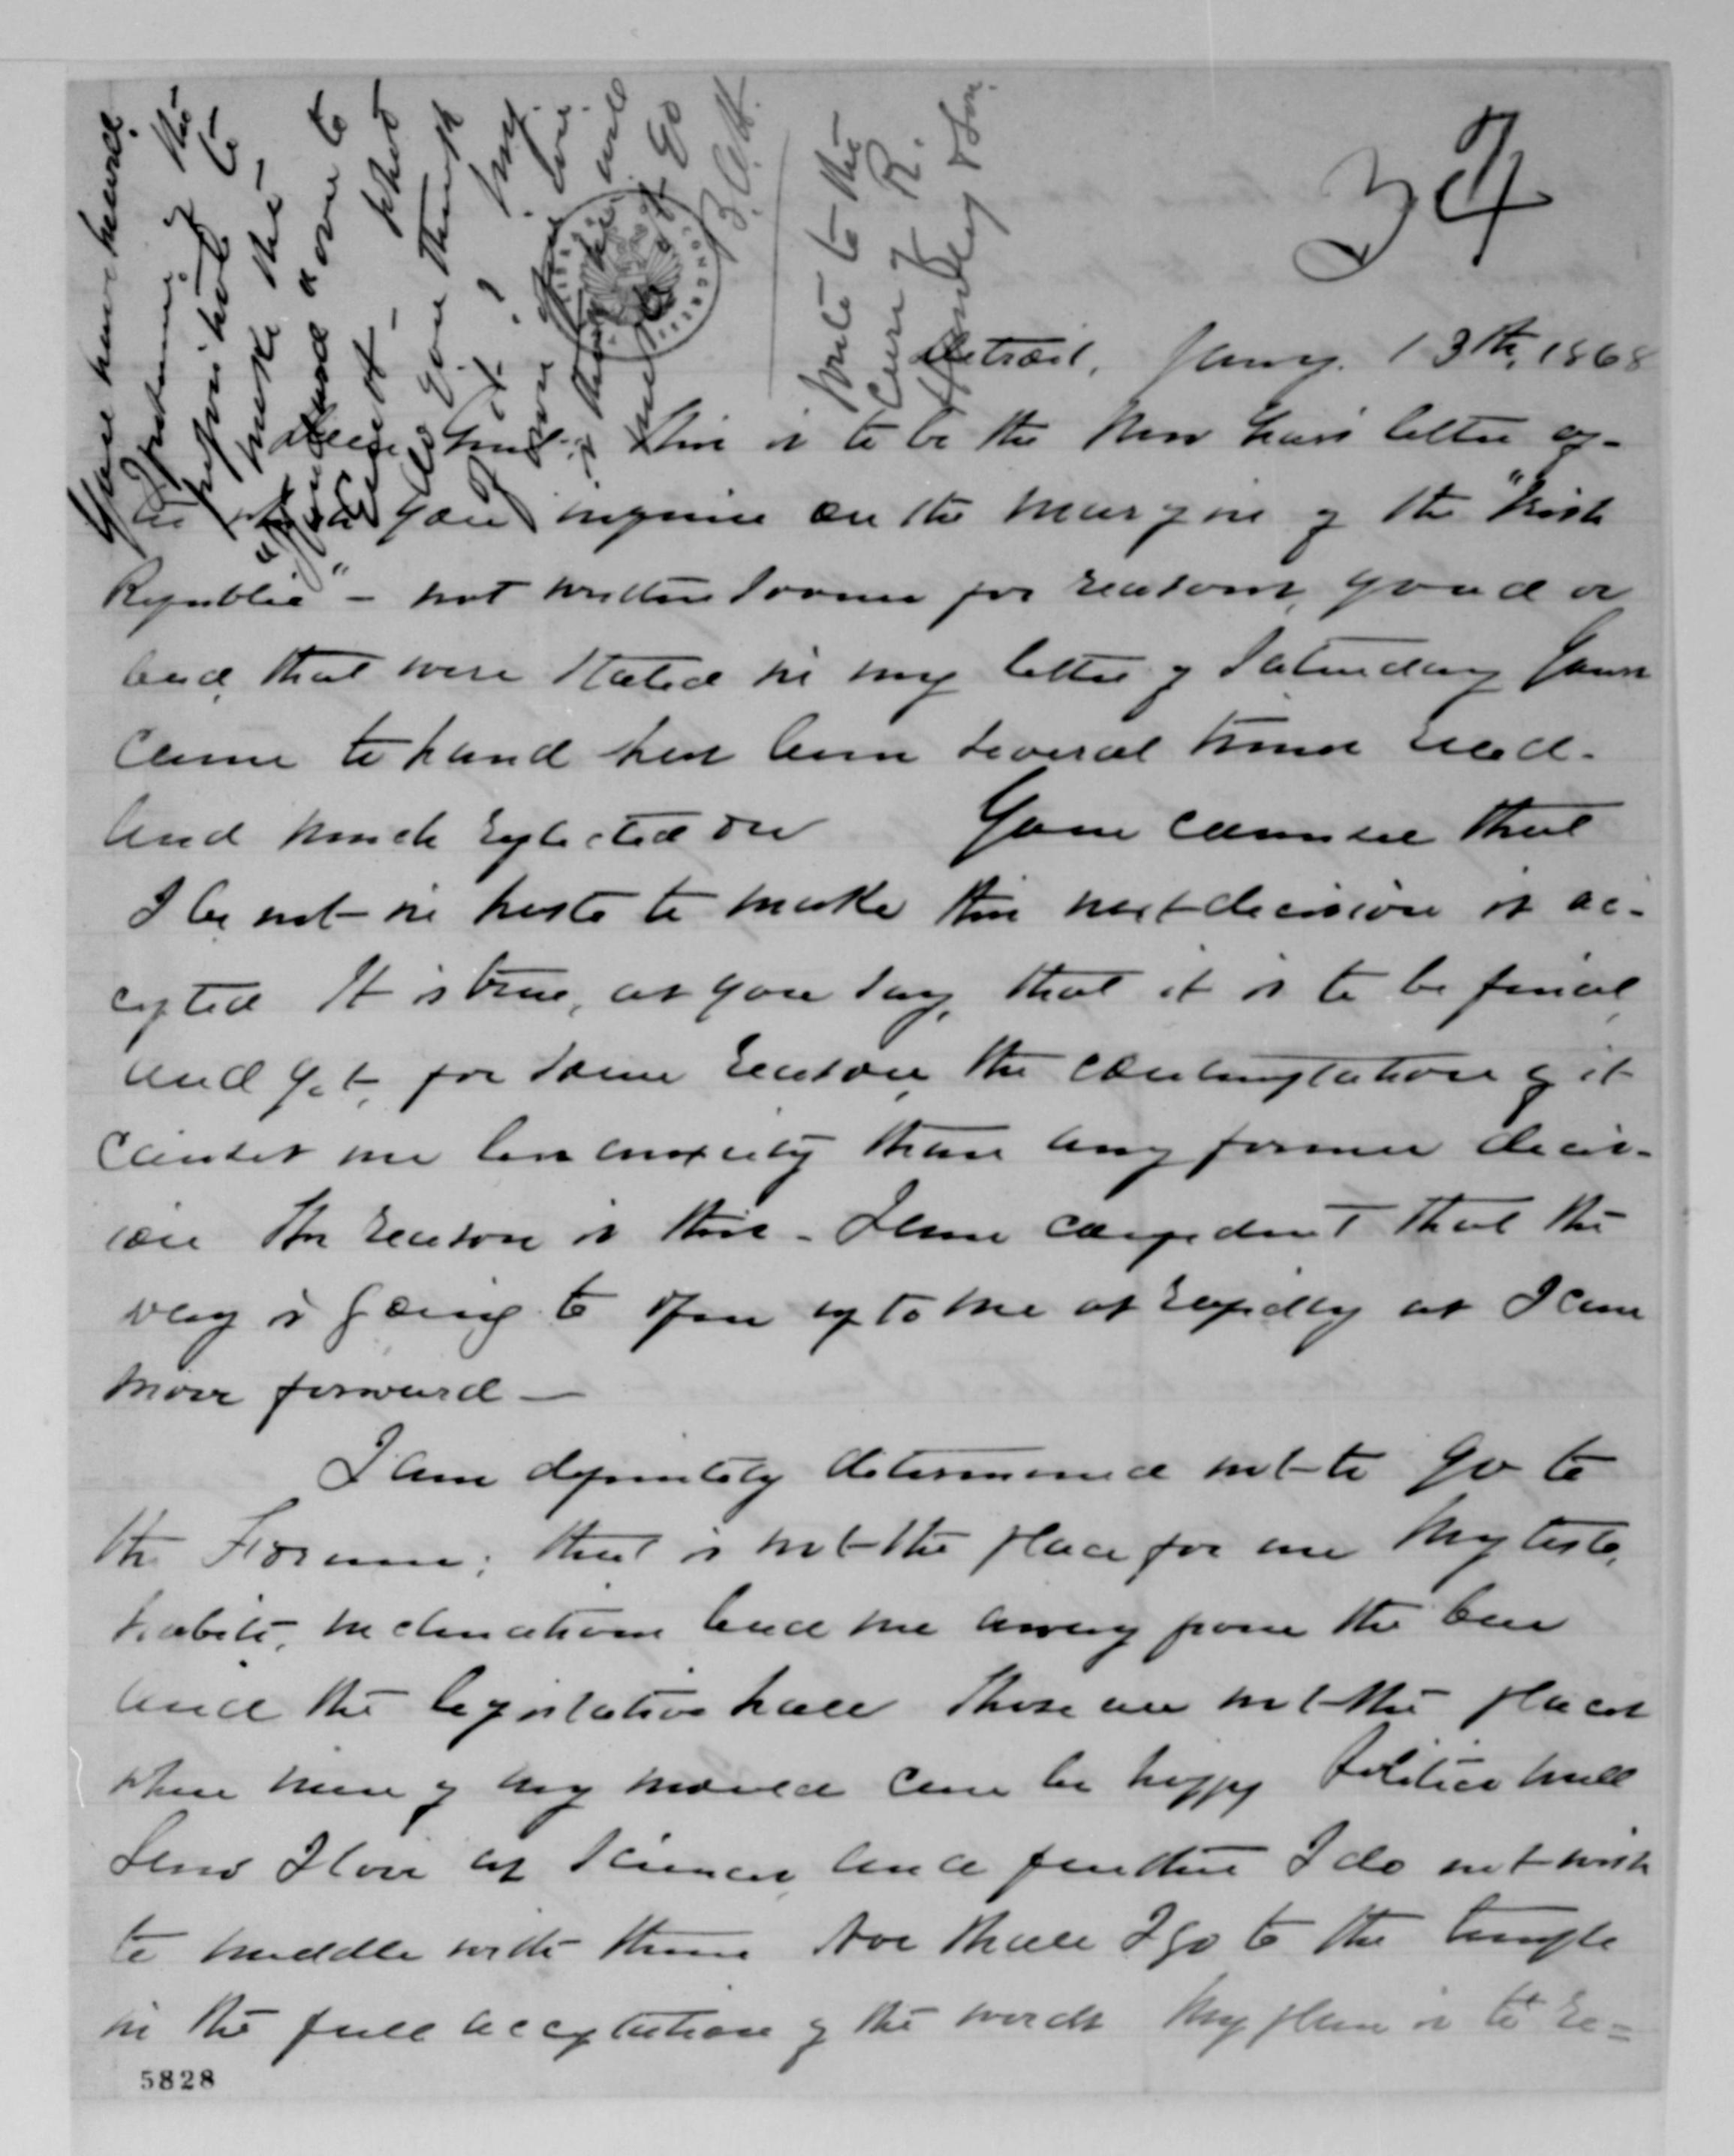 34
Detroit, Jany. 13th, 1868
Dear Friend: This is to be the New Years letter af-
ter which you inquire on the margin of the "Irish
Republic" - not written sooner for reasons, good or
bad, that were stated in my letter of Saturday Yours
came to hand has been several times read.
and much reflected on Your counsel that
I be not in haste to make this next decision is ac-
cepted It is true, as you say, that it is to be final,
and yet, for some reason, the contemplation of it
causes me less anxiety than any former decis-
ion The reason is this - I am confident that the
way is going to open up to me as rapidly as I can
move forward —
I am definitely determined not to go to
the Forum; that is not the place for me My taste,
habits, inclinations lead me away from the bar
and the legislative hall These are not the places
where men of my mould can be happy Politics and
Law I love as sciences, and further I do not wish
to meddle with them Nor shall I go to the temple
in the full acceptation of the words My plan is to re-
You have heard
of the
make the
and
you think
of it? My
B.A.H.
Write to the
Cure of R.
Handley & Son.
5828